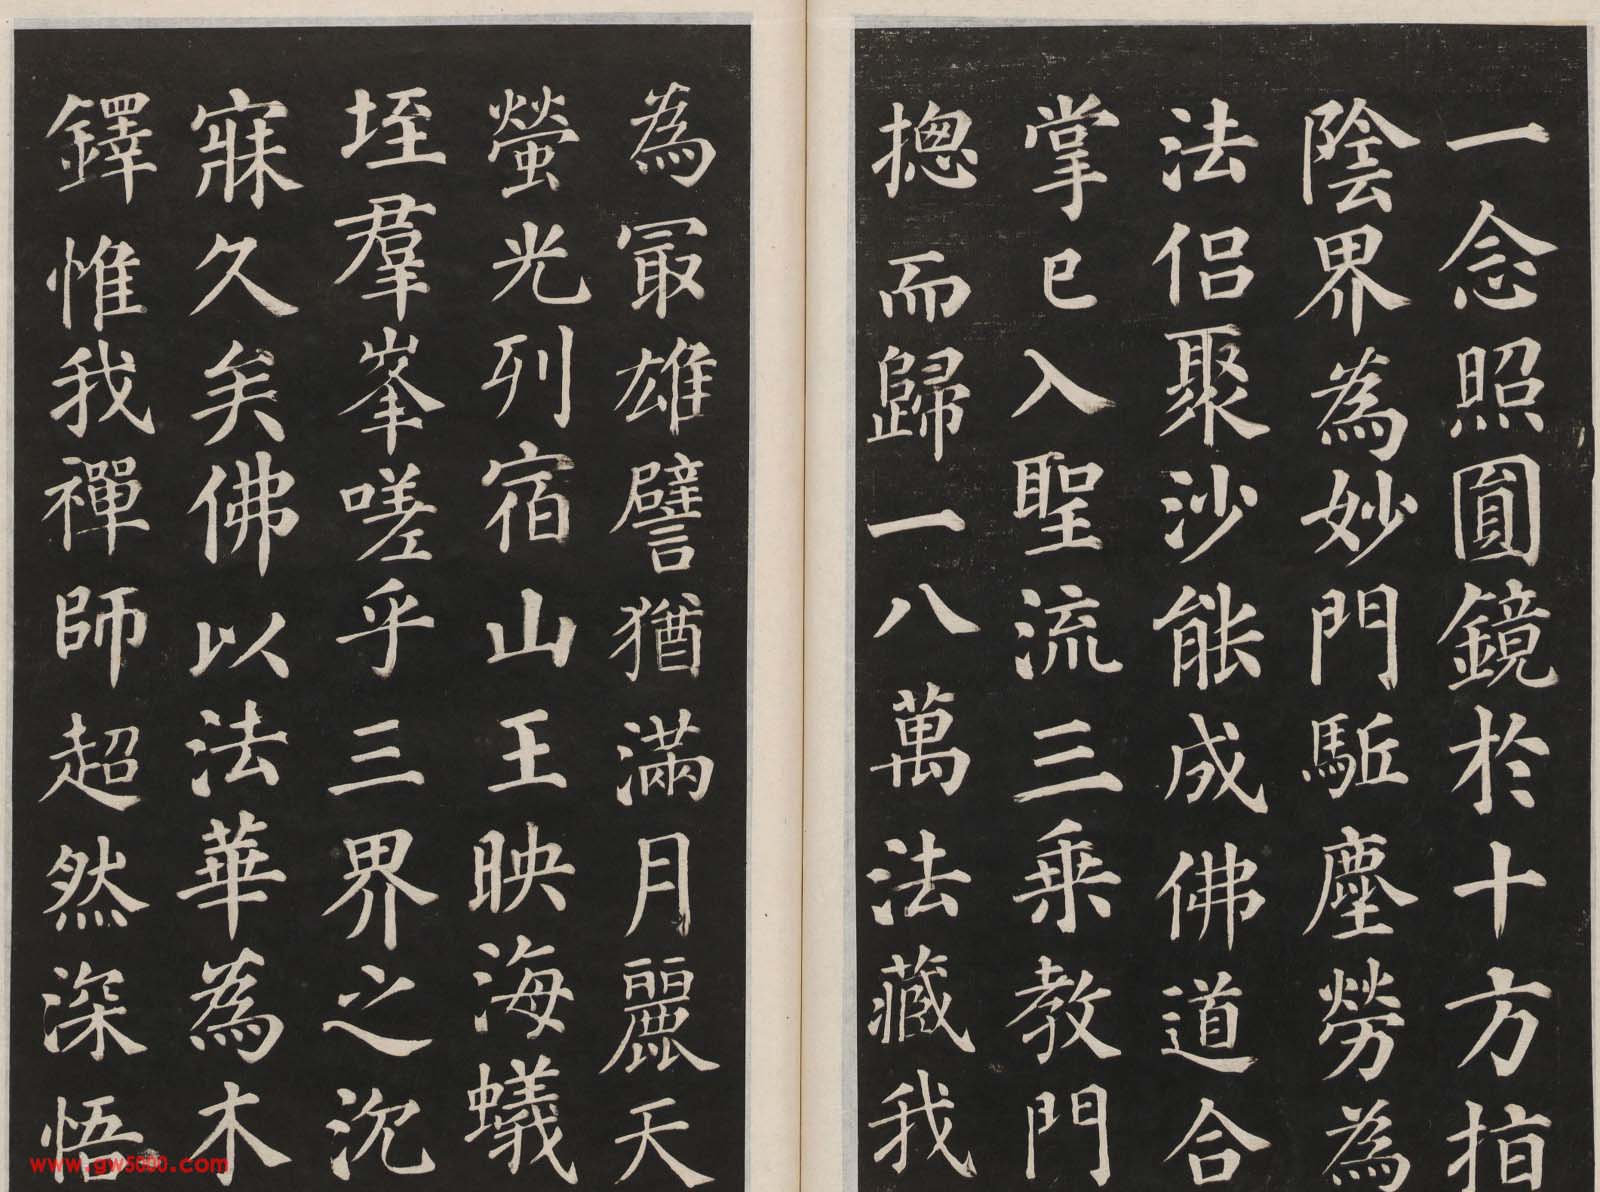 一念照圓鏡於十方指
陰界為妙門駈塵勞為
法侶聚沙能成佛道合
掌已入聖流三乘教門
摠而歸一八萬法藏我
為冣雄譬猶滿月麗天
螢光列宿山王映海蟻
垤羣峯嗟乎三界之沉
寐久矣佛以法華為木
鐸惟我禪師超然深悟
www.gw5000.com